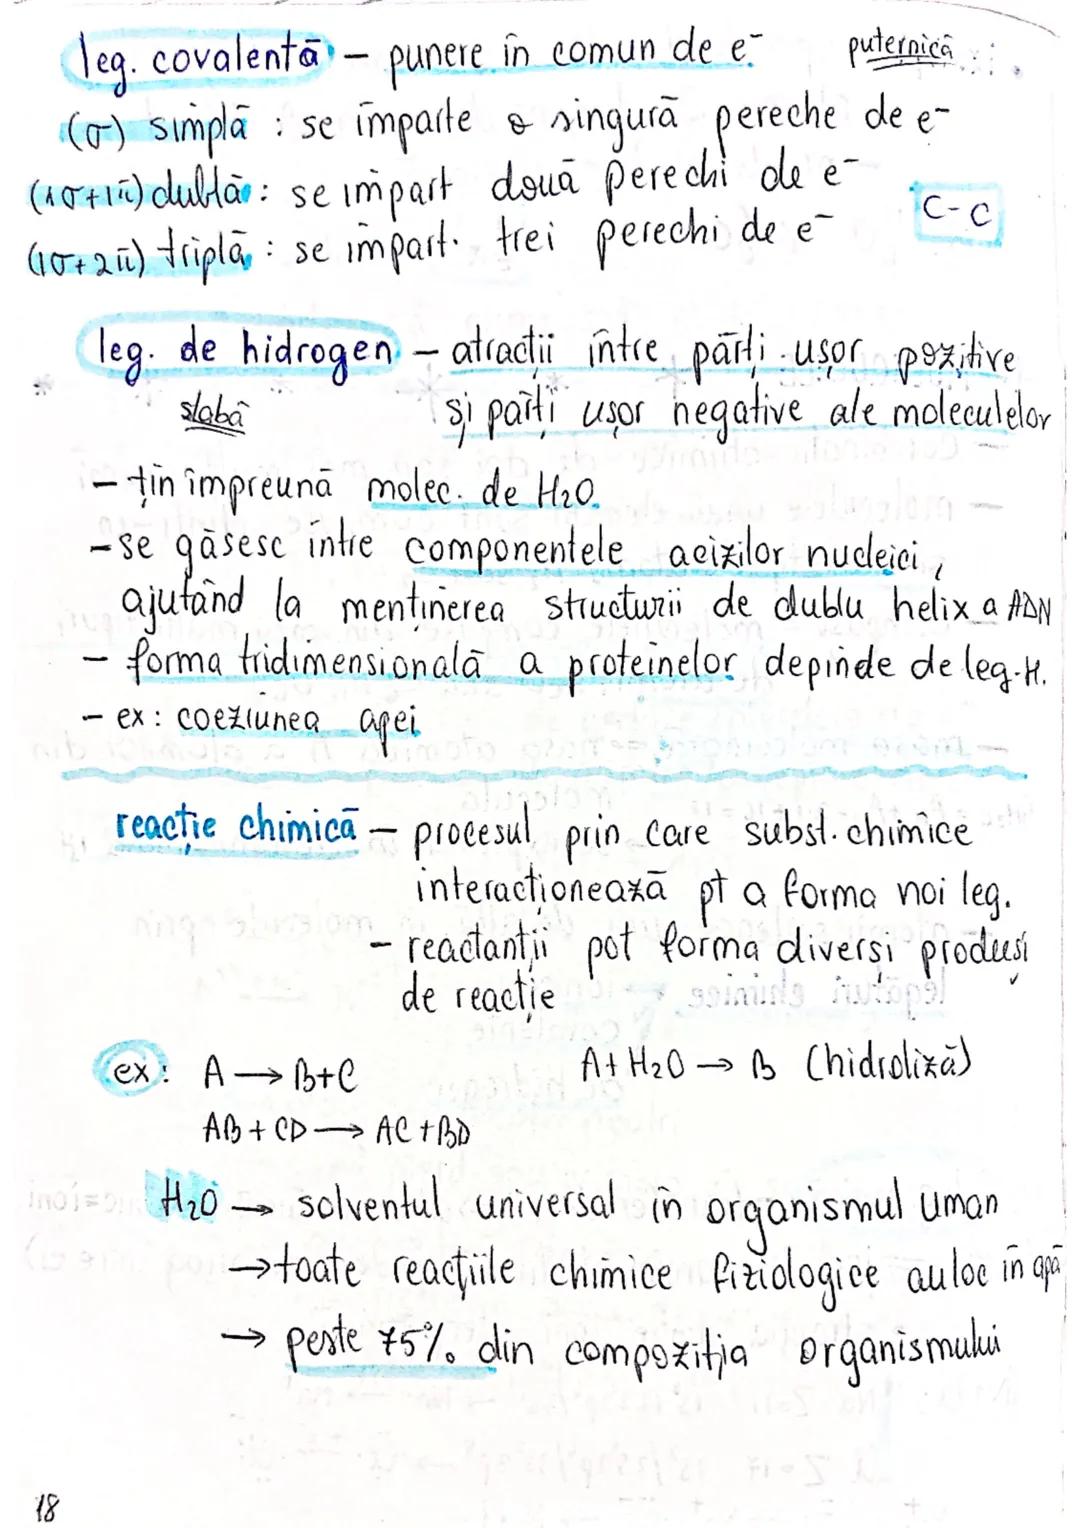 leg. covalentă - punere în comun de e⁻ puternică
(σ) simplă : se împarte o singură pereche de e⁻
(1σ+1π) dublă : se împart două perechi de e⁻
C-C
(1σ+2π) triplă : se împart. trei perechi de e⁻
leg. de hidrogen - atracții între părți ușor pozitive
slabă și părți ușor negative ale moleculelor
- țin împreună molec. de H₂O.
- se găsesc între componentele acizilor nucleici,
ajutând la menținerea structurii de dublu helix a ADN
- forma tridimensională a proteinelor depinde de leg. H.
- ex: coeziunea apei
reacție chimică - procesul prin care subst. chimice
interacționează pt a forma noi leg.
- reactanții pot forma diverși produși
de reacție
ex: A → B+C A+H₂O → B (hidroliză)
AB + CD → AC + BD
H₂O → solventul universal în organismul uman
→ toate reacțiile chimice fiziologice au loc în apă
→ peste 75% din compoziția organismului
18